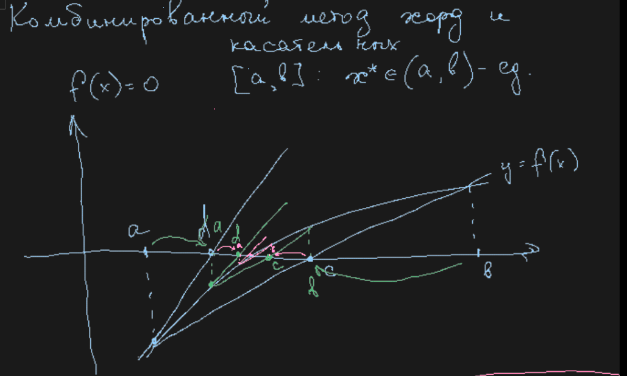 Комбинированный метод хорд и
касательных
f(x)=0 [a,b]: x*∈(a,b)-ед.
y=f(x)
a d a d c c b
b